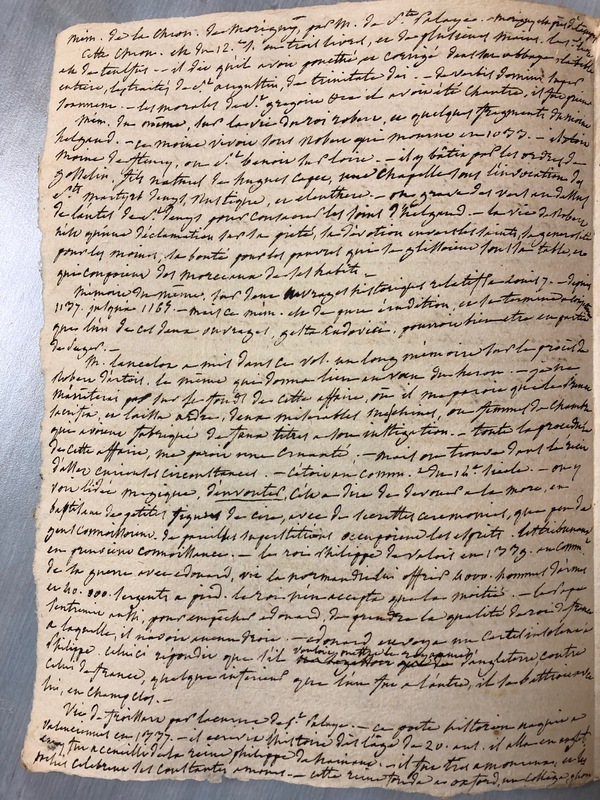 mém. de la chron. de morigny, par M. de Ste Palaye. - morigny etc près d'Etampes
Cette Chron. est du 12e. S. en trois livres, et de plusieurs mains. les
est de teulfus - il dit qu'il avoit ponctué et corrigé dans son abbaye, la bible
entière, les traités de St. augustin, de trinitate dei - de verbis domini super
Joannem. - les morales de St. gregoire &c il avoit été chantre, il fut prieur
Mém. du même, sur la vie du roi robert, et quelques fragments du moine
helgaud. - ce moine vivoit sous Robert qui mourut en 1033. - il étoit
moine de fleury, ou St. benoit sur loire. - il y bâtit par les ordres de
Gosselin, fils naturel de hugues Capet, une Chapelle sous l'invocation des
Sts. martyrs denys Rustique, et eleuthere. - on grava des vers au dessus
de l'autel de St. denys pour consacrer les soins d'helgaud. - la vie de Robert
n'est qu'une déclamation sur la piété, la dévotion envers les saints, la générosité
pour les moines, la bonté pour les pauvres qui se glissoient sous la table, et
qui coupoient des morceaux de ses habits. -
Mémoire du même, sur deux ouvrages historiques relatifs à louis 7. - depuis
1137. jusqu'à 1165 - mais ce mém. est de pure érudition, et se termine à
que l'un de ces deux ouvrages, gesta Ludovici, pourroit bien être en partie
de suger. -
M. lancelot a mis dans ce vol. un long mémoire sur le procès de
Robert d'artois. le même qui donna lieu au vœu du heron. - je ne
m'arrêterai pas sur le fonds de cette affaire, où il me paroit que le Prince
fut, et laissa ardre, deux misérables meschines, ou femmes de chambre
qui avoient fabriqué de faux titres à son instigation. - toute la procédure
de cette affaire, me paroit une cruauté. - mais on trouve dans le récit
d'assez curieuses circonstances. - c'étoit au comm. du 14e. siecle. - on y
voit l'idée magique, d'envouter, c'est à dire de dévouer à la mort, en
baptisant de petites figures de cire, avec de secrettes ceremonies, que peu de
gens connoissoient. de pareilles superstitions occupoient les esprits. les tribunaux
en prenoient connoissance. - le roi philippe de valois en 1339. au comm.
de la guerre avec edouard, vit la normandie lui offrir 4000. hommes d'armes
et 40.000. sergents à pied. le roi n'en accepta que la moitié. - le Pape
s'entremit aussi, pour empêcher edouard, de prendre la qualité de roi de france
à laquelle, il n'avoit aucun droit. - edouard envoya un Cartel insolent à
Philippe. celui ci répondit que s'il vouloit mettre le royaume d'angleterre contre
celui de france, quoique inférieur que l'un fut à l'autre, il se battroit avec
lui, en champ clos. -
Vie de froissart par la curne de Ste. Palaye. - ce poete historien naquit à
valenciennes en 1337. - il écrivit l'histoire dès l'âge de 20. ans. il alla en anglet.
fut accueilli de la reine philippe de hainaut. - il fut très amoureux, et les
poesies celebrent ses constantes amours. - cette reine fonda à oxford, un collège, qu'on